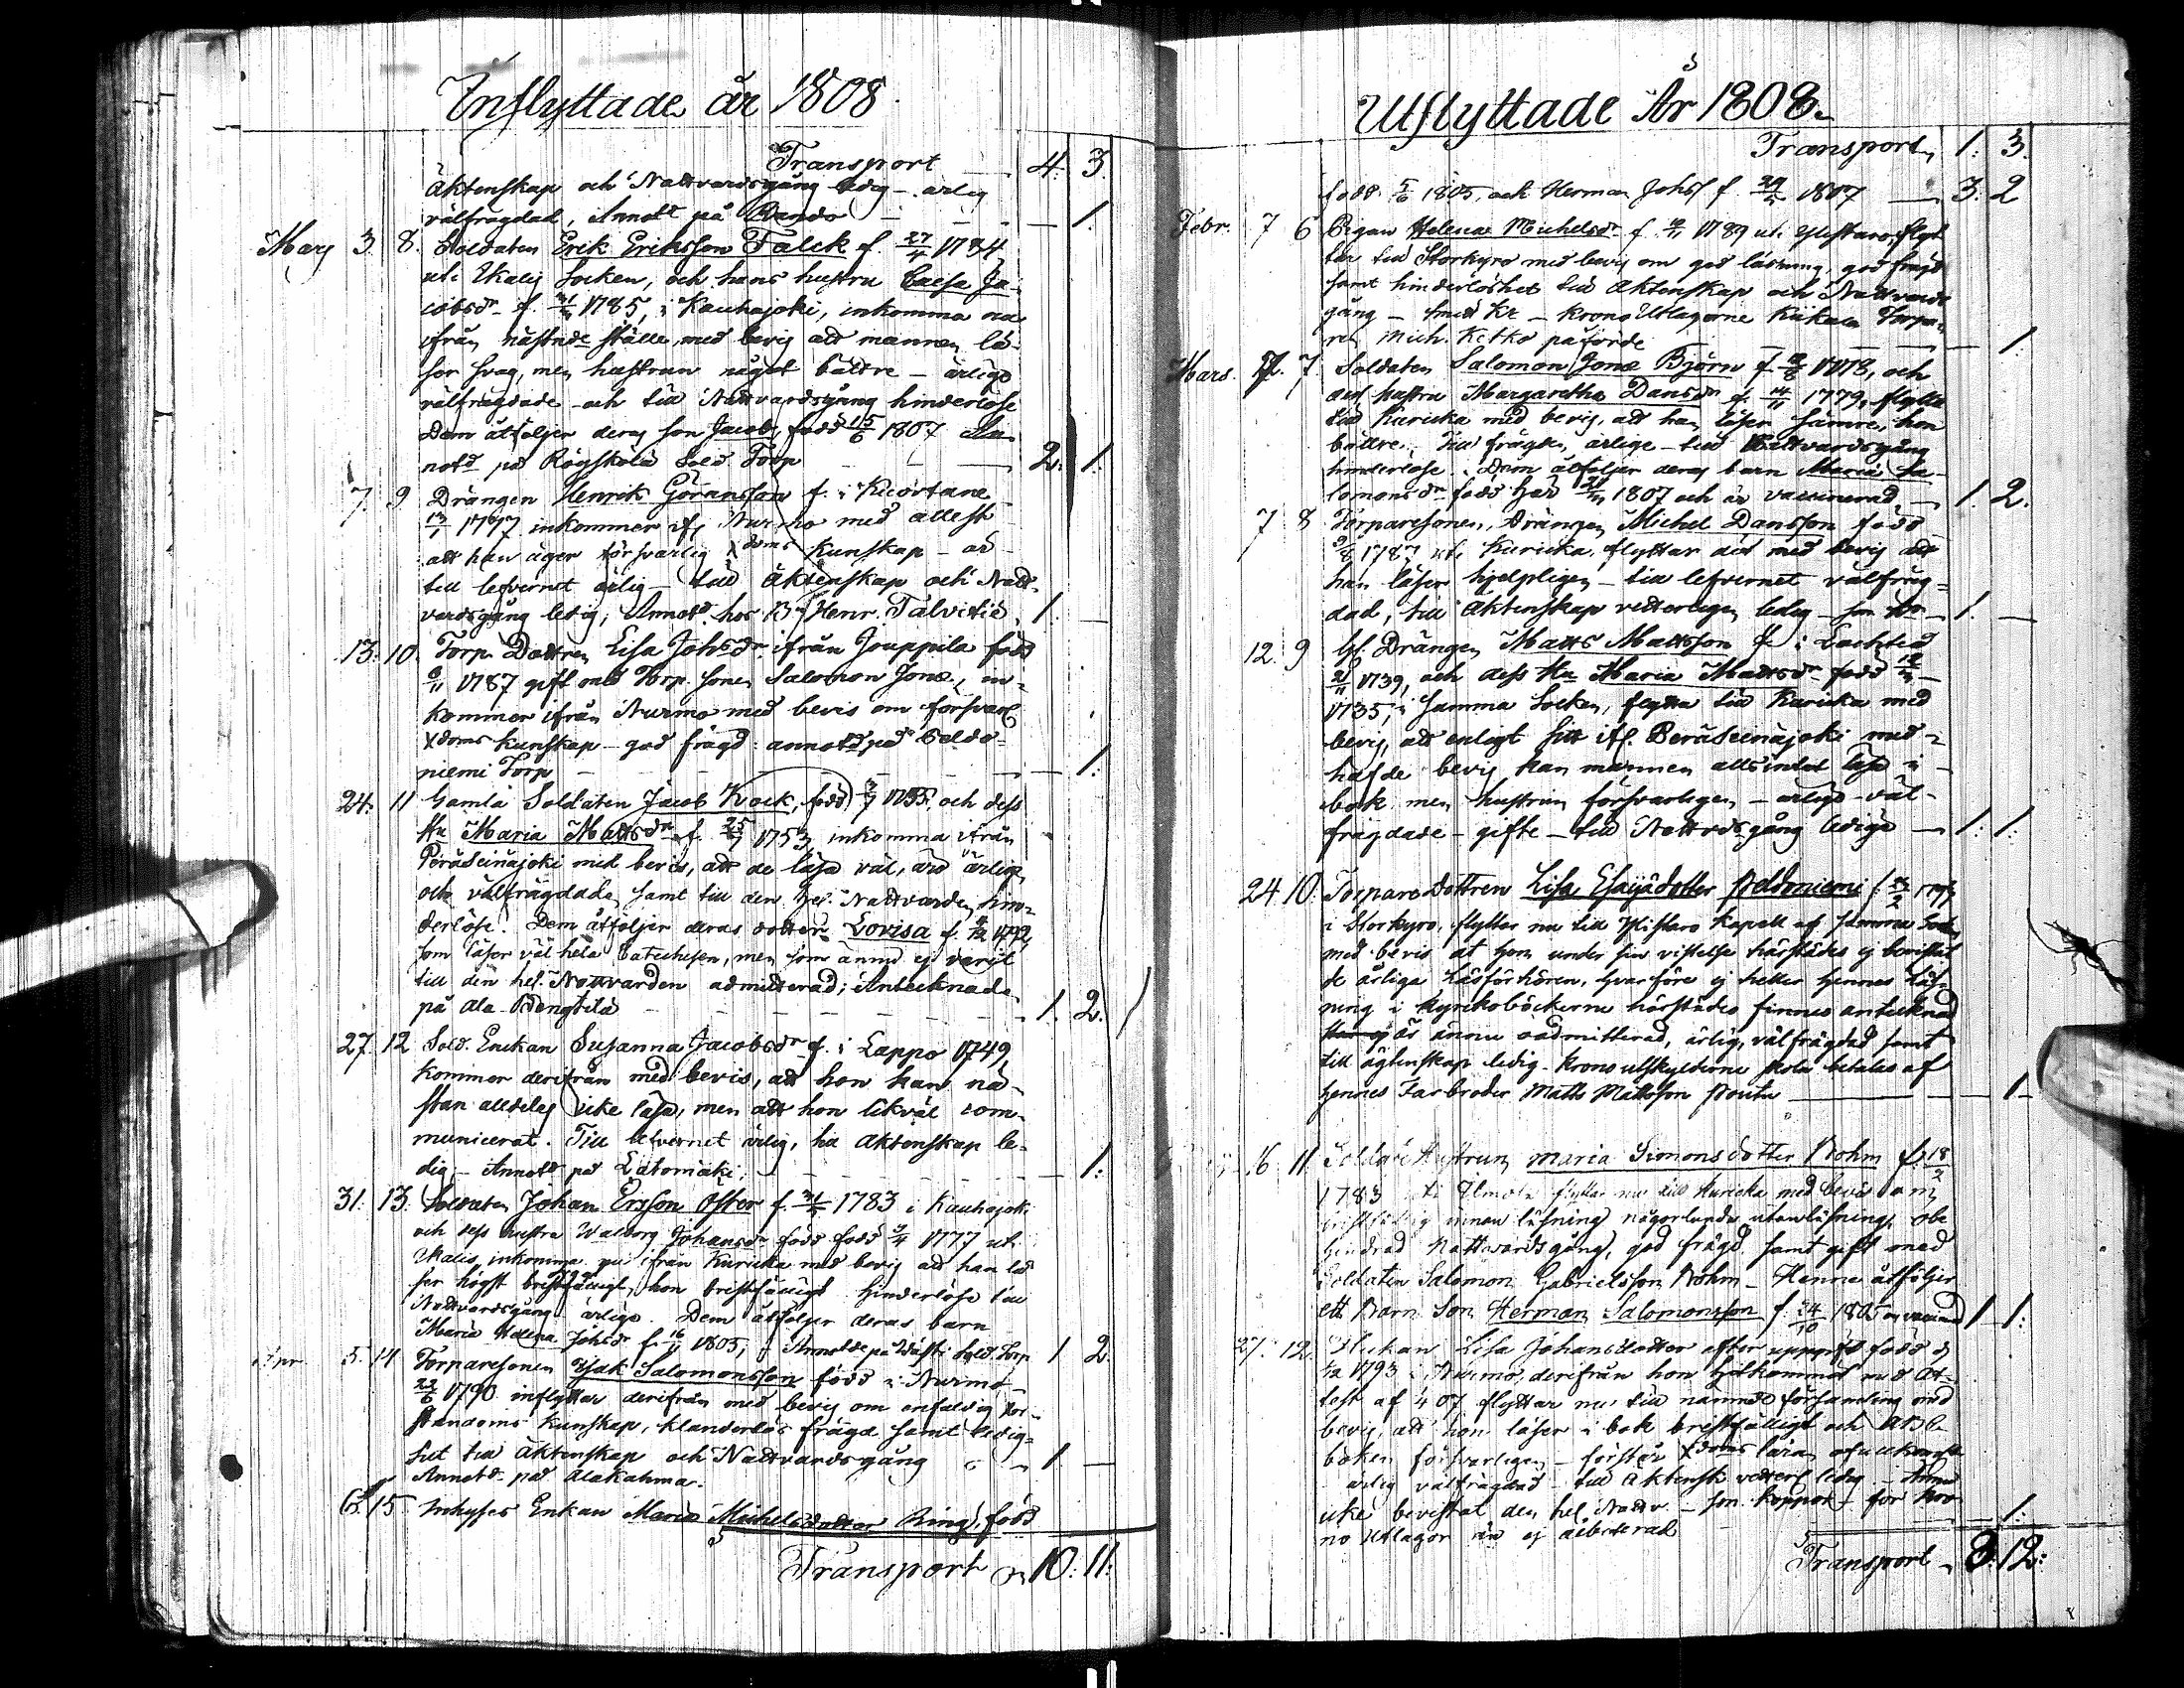 Inflyttade år 1808
Transport 4. 3.
Äktenskap och Nattvardsgång ledig - ärlig
välfrägdad, Annoterad på - 1.
Mars 3. 8. Soldaten Erik Eriksson Falck f. 27/4 1784
uti Ikalis Socken, och hans hustru Caisa Ja-
cobsdr f. 1785, i Kauhajoki, inkomma nu
ifrån nästnde ställe, med bevis att mannen lä-
ser svag, men hustrun något bättre - ärlige
välfrägdade - och till Nattvardsgång hinderlöse
Dem åtföljer deras son Jacob, född 15/6 1807 An-
notd på Röyskölä Sold. Torp 2. 1.
7. 9 Drängen Henrik Göransson f. i Kuortane
13/1 1777 inkommer ifr. Nurmo med attest
att han äger försvarlig Xdoms Kunskap - är
till lefvernet ärlig - till Äktenskap och Natt-
vardsgång ledig; Annotd. hos Bn Henr. Talvitie 1. -
13. 10. Torp. Dottren Lisa Johsdr ifrån Jouppila född
6/11 1787 gift med Torp. Sonen Salomon Jonæ, in-
kommer ifrån Nurmo med bevis om försvarl
Xdoms kunskap - god frägd: annotd på Beldo-
niemi Torp - 1.
24. 11 Gamla Soldaten Jacob Kock, född 1755, och dess
Hu Maria Mattsdr f. 25/7 1753, inkomma ifrån
Peräseinäjoki med bevis, att de läsa väl, äro ärlige
och välfrägdade samt till den hel. Nattvarden hin-
derlöse. Dem åtföljer deras dotter Lovisa f. 1792,
som läser väl hela Catechesen, men som ännu ej varit
till den hel. Nattvarden admitterad; Antecknade
på Ala Rengvila 1. 2.
27. 12 Sold. Enckan Susanna Jacobsdr f. i Lappo 1749,
kommer derifrån med bevis, att hon kan nä-
stan alldeles icke läsa, men att hon likväl com-
municerat. Till lefvernet ärlig, till Äktenskap le-
dig - Annotd på Latomäki - 1.
31. 13. Soldaten Johan Ersson Öster f. 1783 i Kauhajoki
och dess hustru Walborg Johansdr född 1777 uti
Ikalis, inkomma nu ifrån Kuricka med bevis att han lä-
ser högst bristfälligt, hon bristfälligt Hinderlöse till
Nattvardsgång ärlige. Dem åtföljer deras barn
Maria Helena Johsdr f. 16/11 1805, Annotde på Sold. Torp 1 2.
Apr. 5. 14 Torparesonen Isak Salomonsson född i Nurmo
22/6 1790 inflyttar derifrån med bevis om enfaldig
kunskap, klanderlös frägd samt ledig-
het till Äktenskap och Nattvardsgång 1 -
Annotd på Alakahma.
6. 15 Inhyses Enkan Maria Michelsdotter Ring, född
Transport 10. 11.
Utflyttade År 1808.
Transport 1. 3.
född 5/6 1805, och Herman Johss f. 1807 3. 2
Febr. 7 6 Pigan Helena Michelsdr f. 1789 uti Ylistaro, flyt
tar till Storkyro med bevis om god läsning, god frägd
samt hinderlöshet till Äktenskap och Nattvards
gång - Krono Utlagorne Torpa-
ren Mich. Ketko påförde - 1.
Mars. 7. Soldaten Salomon Jonæ Björn f. 1778, och
dess hustru Margaretha Dansdr f. 14/11 1779, flytta
till Kuricka med bevis, att han läser sämre, hon
bättre. Till frägden ärlige - till Nattvardsgång
hinderlöse. Dem åtföljer deras barn Maria Sa-
lomonsdr född här 1807 och är vaccinerad 1. 2.
7 8 Torparesonen, Drängen Michel Dansson född
9/8 1787 uti Kuricka, flyttar dit med bevis att
han läser hjelpligen - till lefvernet välfräg-
dad, till Äktenskap vetterligen ledig - 1. -
12. 9 Gl. Drängen Matts Mattsson f. i
1739, och dess Hu Maria Mattsdr född
1735, i samma Socken, flytta till Kuricka med
bevis, att enligt sitt ifr. Peräseinäjoki med-
hafde bevis kan mannen alls intet läsa i
bok men hustrun försvarligen - ärlige - väl-
frägdade - gifte - till Nattvdsgång ledige 1. 1.
24 10. Torpare Dottren Lisa Esaijædotter Peldoniemi f. 1797
i Storkyro, flyttar nu till Ylistaro Kapell af samma Sockn
med bevis at hon under sin vistelse härstädes ej bevistat
de årliga Läsförhören, hvarföre ej heller hennes Läs-
ning i Kyrkoböckerne härstädes finnes antecknad
är ännu oadmitterad, ärlig, välfrägdad samt
till ägtenskap ledig. Kronoutskylderne skola betalas af
hennes Farbroder Matts Mattsson - 1 -
16 11 Soldatehustrun Maria Simonsdotter Bohm f. 18/2
1783 uti Ilmola flyttar nu till Kuricka med bevis om
bristfällig innan läsning någorlunda utanläsning, obe
hindrad Nattvardsgång, god frägd samt gift med
Soldaten Salomon Gabrielsson Bohm - Henne åtföljer
ett Barn Son Herman Salomonsson f. 24/10 1805 1 1.
27. 12. Flickan Lisa Johansdotter efter uppgift född
1793 i Nurmo, derifrån hon hitkommit med At-
test af flyttar nu till nämnde församling med
bevis, att hon läser i bok bristfälligt och ABC
boken försvarligen - förstår Xdoms lära
ärlig välfrägdad till Äktensk. vetterl ledig - ännu
icke bevistat den hel. Nattv. - för Kro
no Utlagor är ej debiterad - 1.
Transport 8. 12.